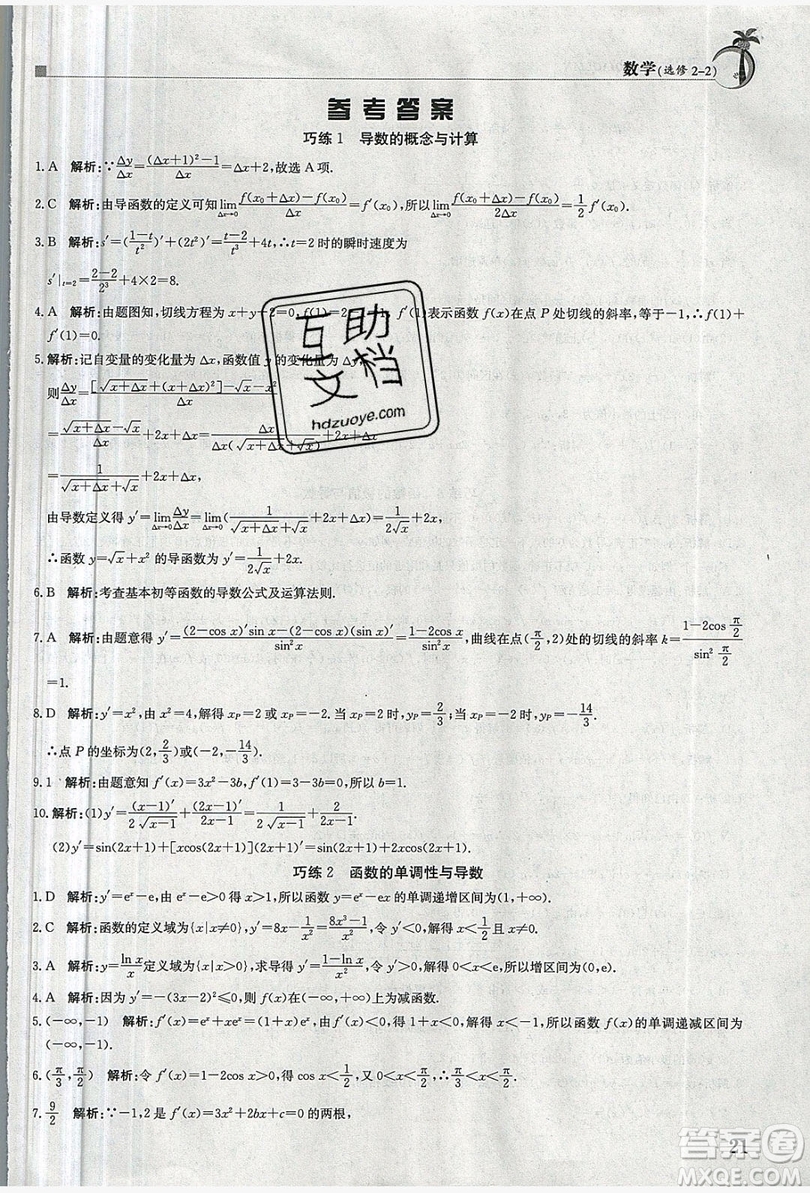 数学(选修2-2)
参考答案
巧练1 导数的概念与计算
1. A 解析:∵Δy/Δx=((Δx+1)²-1)/Δx=Δx+2,故选A项.
2. C 解析:由导函数的定义可知lim(Δx→0) (f(x₀+Δx)-f(x₀))/Δx=f′(x₀),所以lim(Δx→0) (f(x₀+Δx)-f(x₀))/2Δx=1/2 f′(x₀).
3. B 解析:s′=((1-t)/t²)′+(2t²)′=(t-2)/t³+4t,∴t=2时的瞬时速度为
s′|t=2=(2-2)/2³+4×2=8.
4. A 解析:由题图知,切线方程为x+y-2=0,f(1)=2-1=1,f′(1)表示函数f(x)在点P处切线的斜率,等于-1,∴f(1)+
f′(1)=0.
5. 解析:记自变量的变化量为Δx,函数值y的变化量为Δy,
则Δy/Δx=([√(x+Δx)+(x+Δx)²]-
=(√(x+Δx)-√x)/Δx+2x+Δx=Δx/(Δx(√(x+Δx)+√x))+2x+Δx
=1/(√(x+Δx)+√x)+2x+Δx,
由导数定义得y′=lim(Δx→0) Δy/Δx=lim(Δx→0)(1/(√(x+Δx)+√x)+2x+Δx)=1/(2√x)+2x,
∴函数y=√x+x²的导函数y′=1/(2√x)+2x.
6. B 解析:考查基本初等函数的导数公式及运算法则.
7. A 解析:由题意得y′=((2-cos x)′sin x-(2-cos x)(sin x)′)/sin²x=(1-2cos x)/sin²x,曲线在点(π/2,2)处的切线的斜率k=(1-2cos π/2)/(sin² π/2)
=1.
8. D 解析:y′=x²,由x²=4,解得xP=2或xP=-2.当xP=2时,yP=2/3;当xP=-2时,yP=-14/3.
∴点P的坐标为(2,2/3)或(-2,-14/3).
9. 1 解析:由题意知f′(x)=3x²-3b,f′(1)=3-3b=0,所以b=1.
10. 解析:(1)y′=(x-1)′/(2√(x-1))+(2x-1)′/(2x-1)=1/(2√(x-1))+2/(2x-1).
(2)y′=sin(2x+1)+[xcos(2x+1)](2x+1)′=sin(2x+1)+2xcos(2x+1).
巧练2 函数的单调性与导数
1. D 解析:y′=eˣ-e,eˣ-e>0得x>1,所以函数y=eˣ-ex的单调递增区间为(1,+∞).
2. C 解析:函数的定义域为{x|x≠0},y′=8x-1/x²=(8x³-1)/x²,令y′<0,解得x<1/2且x≠0.
3. A 解析:y=ln x/x定义域为(0,+∞),求导得y′=(1-ln x)/x²,令y′>0,解得0<x<e,所以单调递增区间为(0,e).
4. A 解析:因为y′=-(3x-2)²≤0,所以f(x)在(-∞,+∞)上为减函数.
5. (-∞,-1) 解析:f′(x)=eˣ+xeˣ=eˣ(x+1),由f′(x)<0,解得x<-1,所以函数f(x)的单调递减区间为
(-∞,-1).
6. (π/3,π/2) 解析:令f′(x)=1-2cos x>0,则cos x<1/2,又x∈(0,π/2),解得π/3<x<π/2.
7. 9/2 解析:∵-1,2是f′(x)=3x²+2bx+c=0的两根,
21
互助文档
hdzuoye.com
答案圈
MXQE.COM